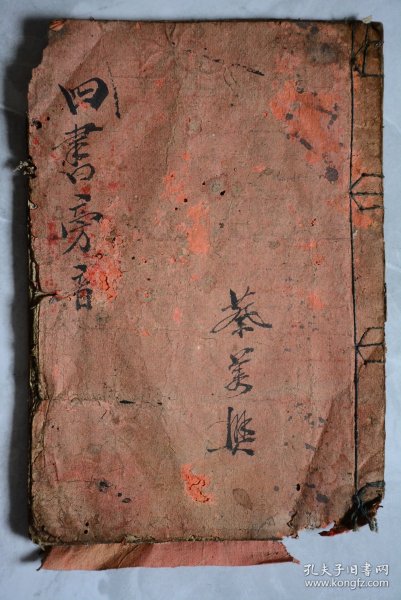 四書旁音
蔡美
孔夫子旧书网
www.kongfz.com